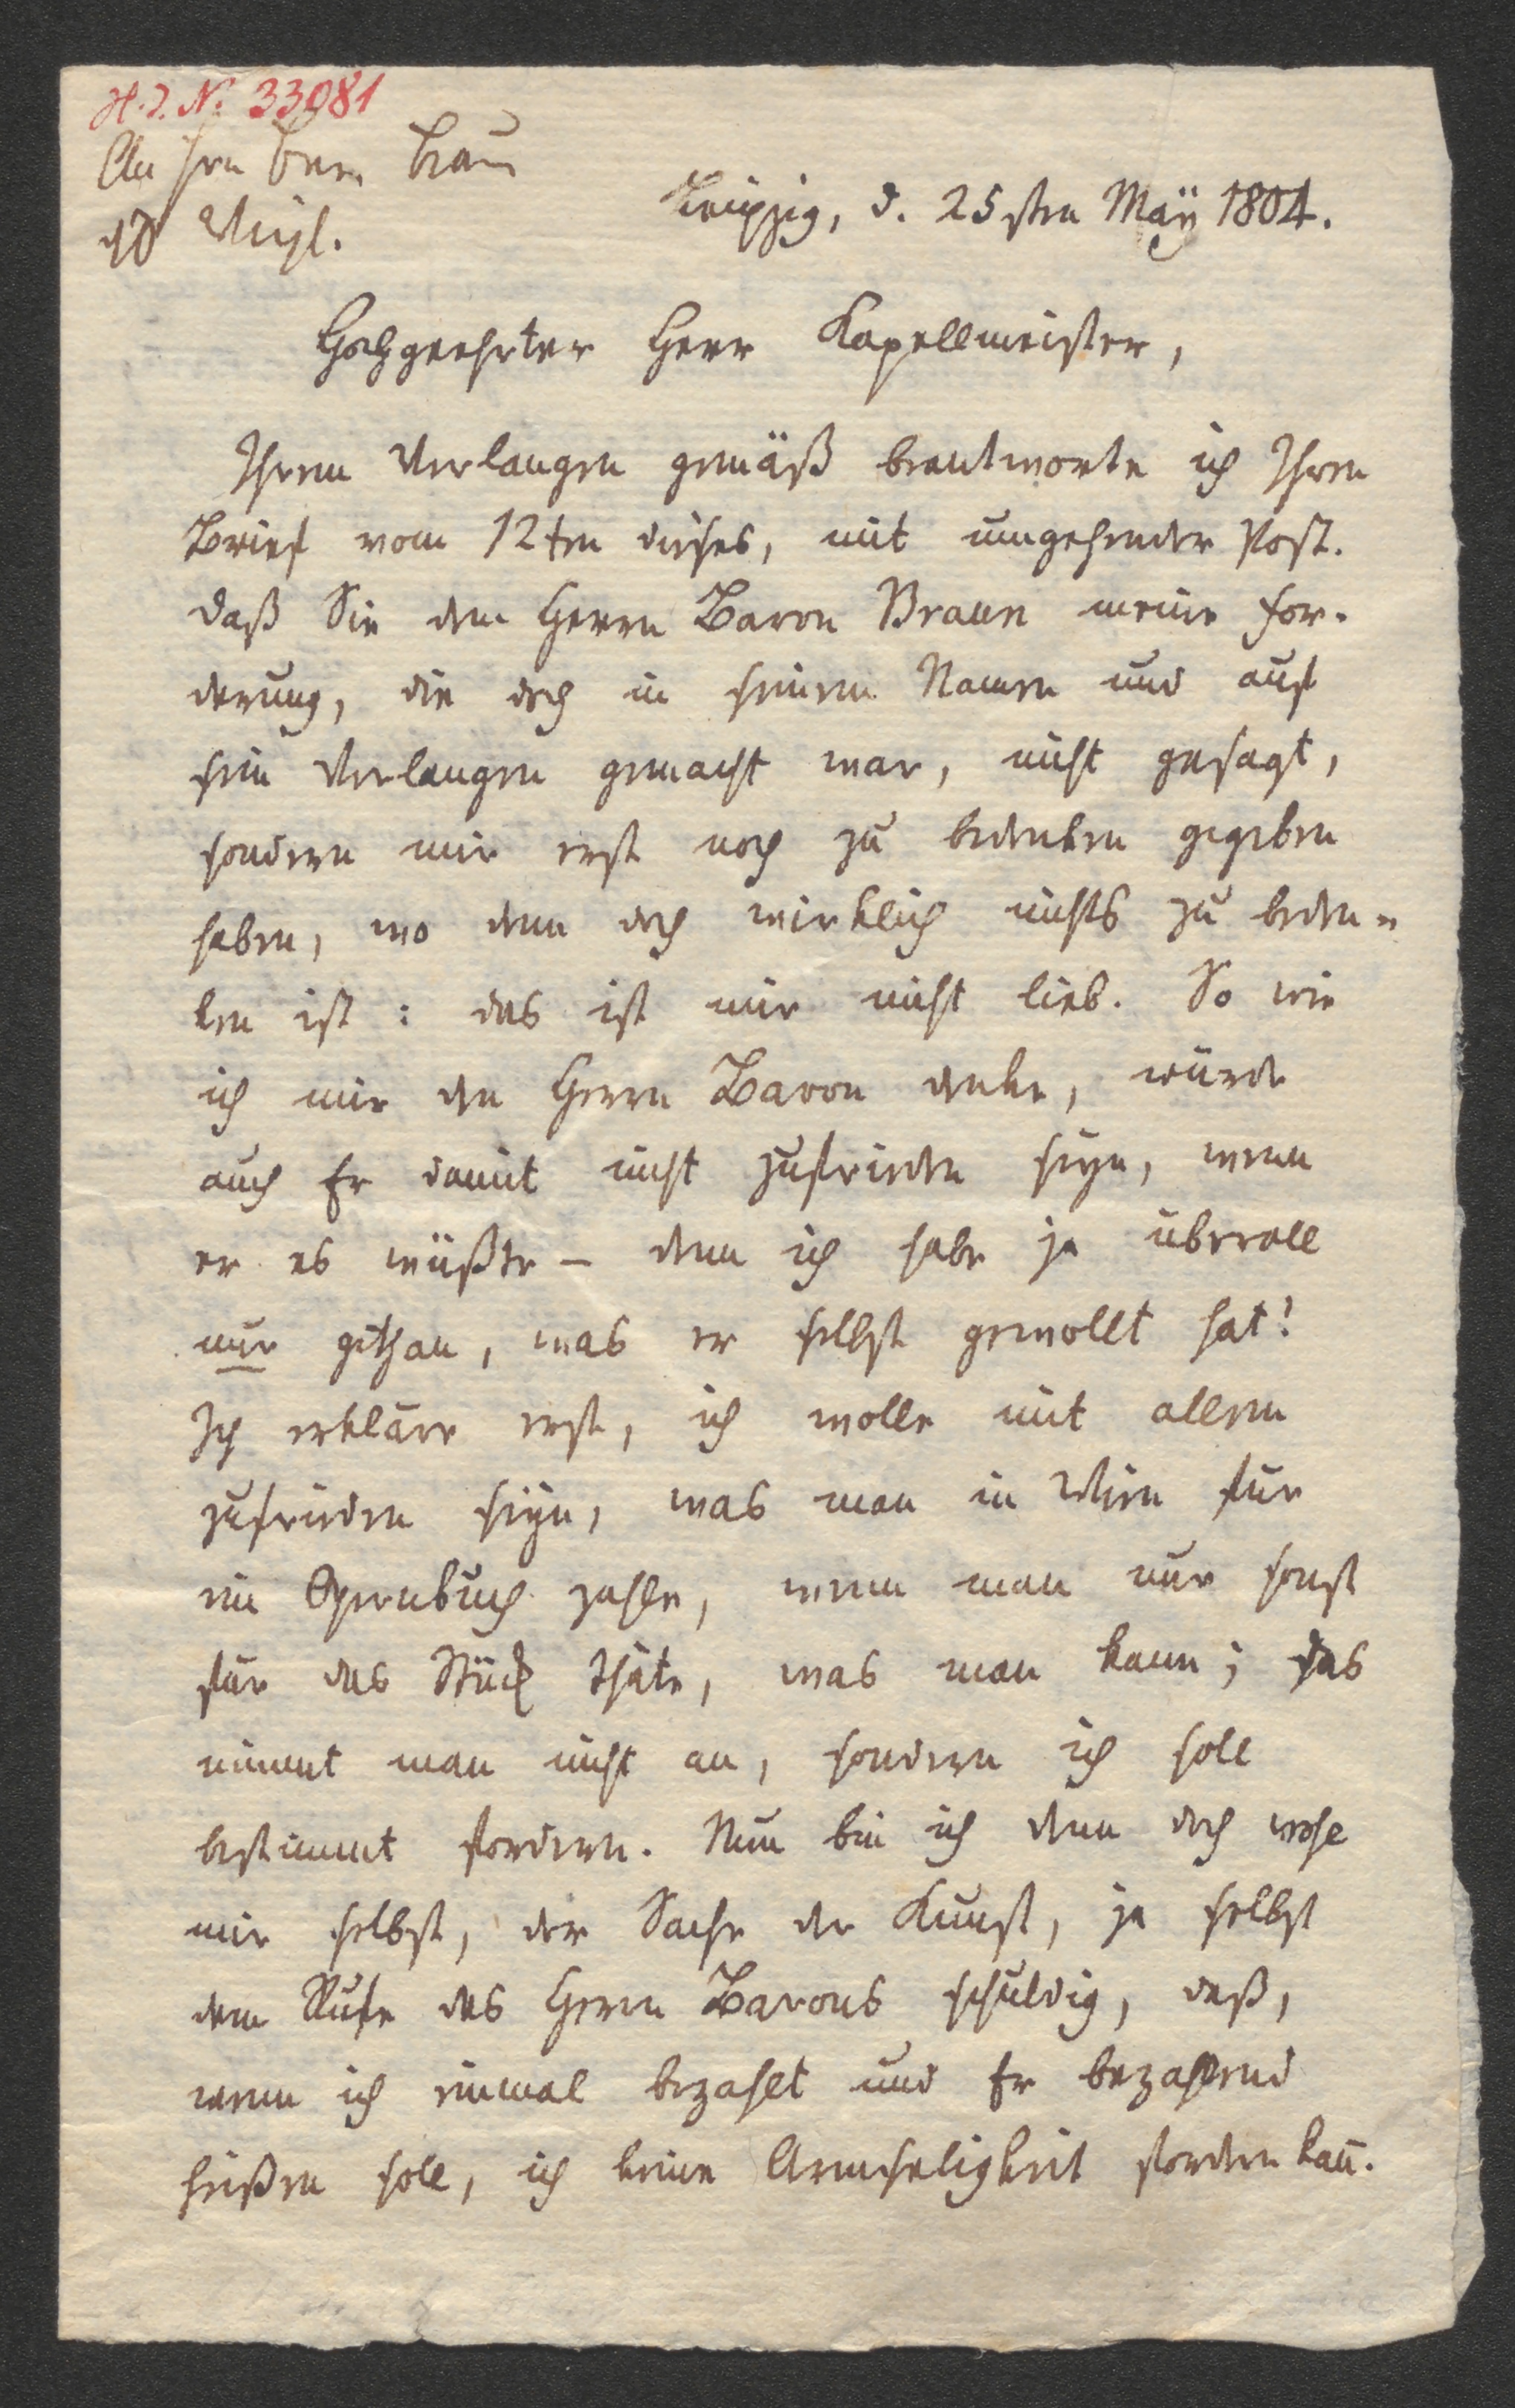 H.I.N. 33081
An Hrn Bar. Braun
Weigl.
Leipzig, d. 25sten May 1804.
Hochgeehrter Herr Kapellmeister,
Ihrem Verlangen gemäß beantworte ich Ihren
Brief vom 12ten dieses, mit umgehender Post.
Daß Sie dem Herrn Baron Braun meine For-
derung, die doch in seinem Namen und auf
sein Verlangen gemacht war, nicht gesagt,
sondern mir erst noch zu bedenken gegeben
haben, wo denn doch wirklich nichts zu beden-
ken ist: das ist mir nicht lieb. So wie
ich mir den Herrn Baron denke, würde
auch Er damit nicht zufrieden seyn, wenn
er es wüßte – denn ich habe ja überall
nur gethan, was er selbst gewollt hat!
Ich erkläre erst, ich wolle mit allem
zufrieden seyn, was man in Wien für
ein Opernbuch zahle, wenn man nur sonst
für das Stück thäte, was man kann; das
nimmt man nicht an, sondern ich soll
bestimmt fordern. Nun bin ich denn doch wohl
mir selbst, der Sache der Kunst, ja selbst
dem Rufe des Herrn Barons schuldig, daß,
wenn ich einmal bezahlt und Er bezahlend
heißen soll, ich keine Armseligkeit fordern kañ.